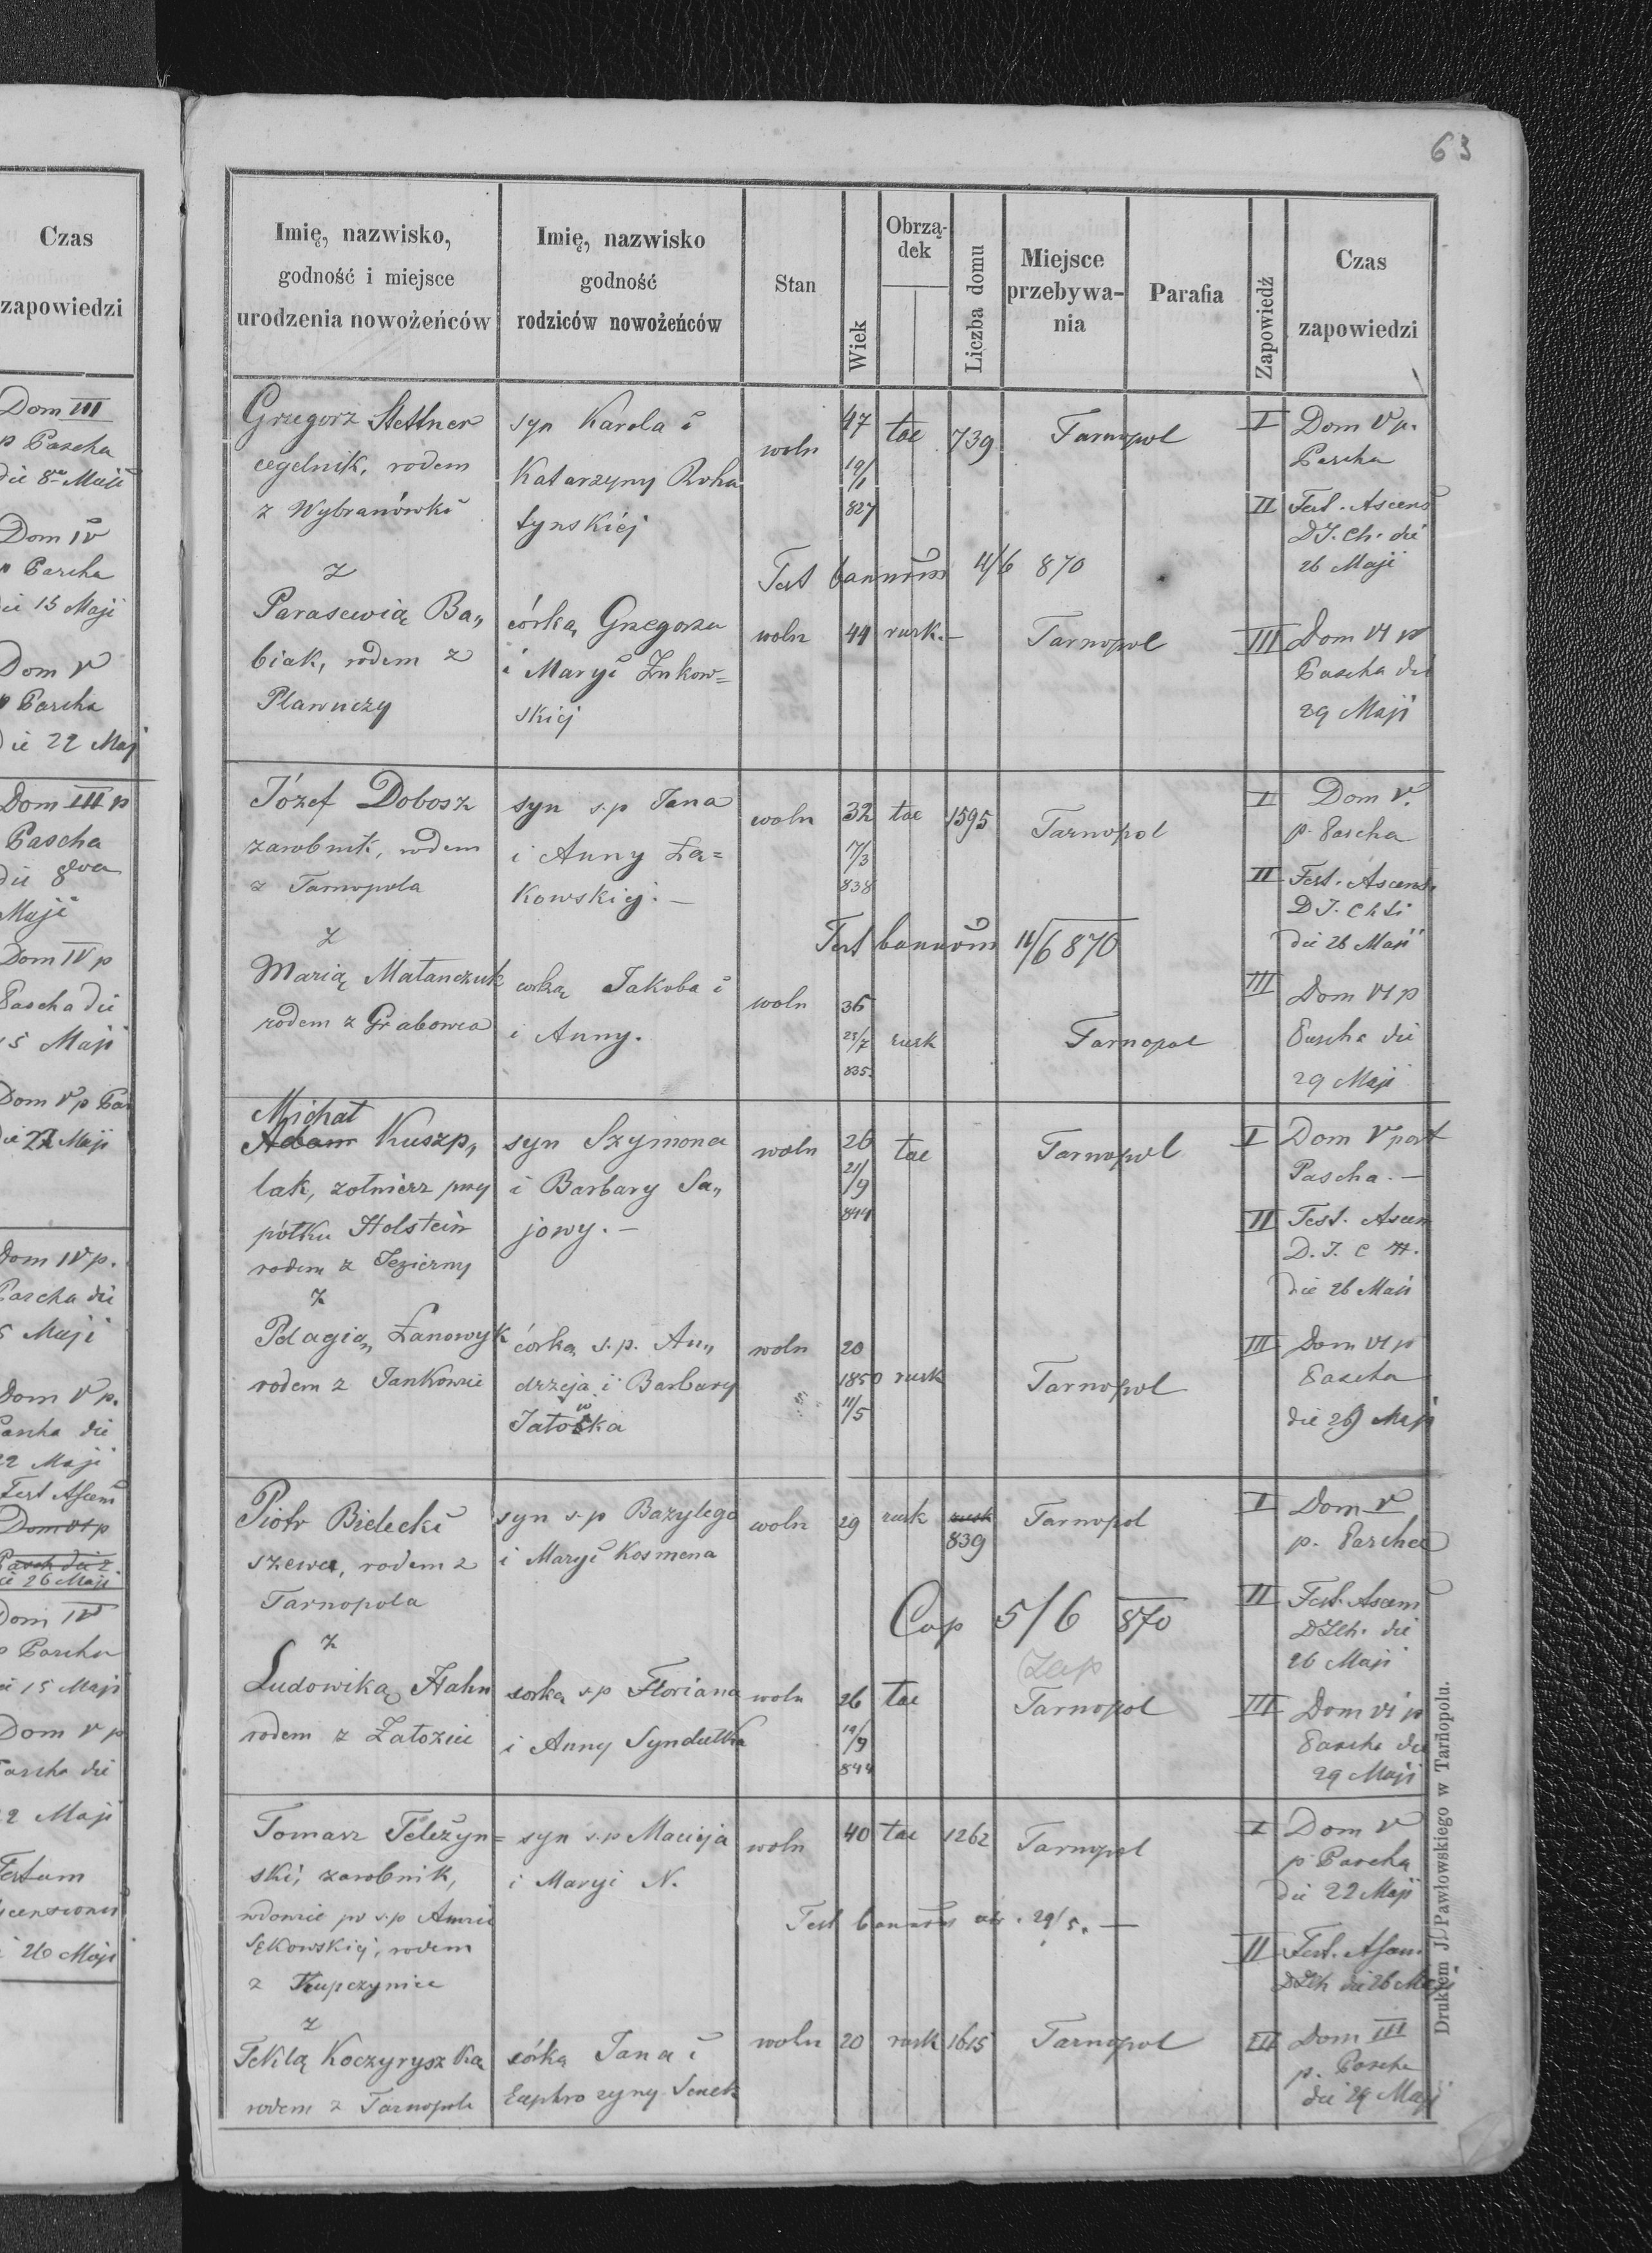 63
Czas
zapowiedzi
Dom III
p Pascha
die 8va Maji
Dom IV
p Pascha
die 15 Maji
Dom V
p Pascha
die 22 Maj
Dom III p
Pascha
die 8va
Maji
Dom IV p
Pascha die
15 Maji
Dom V p Pas
die 22 Maji
Dom IV p.
Pascha die
5 Maji
Dom V p.
Pascha die
22 Maji
Fest Ascens
Dom VI p
Pasch die 2
die 26 Maji
Dom IV
p Pascha
die 15 Maji
Dom V p
Pascha die
22 Maji
Festum
Ascensionis
26 Maji
Imię, nazwisko,
godność i miejsce
urodzenia nowożeńców
Imię, nazwisko
godność
rodziców nowożeńców
Stan
Wiek
Obrzą-
dek
Liczba domu
Miejsce
przebywa-
nia
Parafia
Zapowiedź
Czas
zapowiedzi
Grzegorz Stettner
cegelnik, rodem
z Wybranówki
z
Parasewią Ba„
biak, rodem z
Plawuczy
syn Karola i
Katarzyny Roha
tynskiéj
córką Grzegorza
i Maryi Żukow=
skiej
woln
47
19/1
827
tac
739
Tarnopol
Test bannorum 4/6 870
woln
44
rusk.
Tarnopol
I Dom V p.
Pascha
II Fest. Ascens
D J. Ch. die
26 Maji
III Dom VI p
Pascha die
29 Maji
Józef Dobosz
zarobnik, rodem
z Tarnopola
z
Marią Matanczuk
rodem z Grabowca
syn s.p Jana
i Anny Ła=
kowskiej. —
corką Jakoba i
i Anny.
woln
32
7/3
838
tac
1595
Tarnopol
Test bannorum 11/6 870
woln
36
25/7
835.
rusk
Tarnopol
I Dom V.
p. Pascha
II Fest. Ascens.
D J. Chti
die 26 Maji
III Dom VI p
Pascha die
29 Maji
Michał
Adam Kuszp„
lak, zołnierz przy
półku Holstein
rodem z Jezierny
z
Pelagią Łanowyk
rodem z Jankowic
syn Szymona
i Barbary Sa„
jowy. —
córką s.p. An„
drzeja i Barbary
woln
26
21/9
844
tac
Tarnopol
woln
20
1850
11/5
rusk
Tarnopol
I Dom V post
Pascha. —
II Fest. Ascen
D. J. C H.
die 26 Maji
III Dom VI p
Pascha
die 29 Maji
Piotr Bielecki
szewc, rodem z
Tarnopola
z
Ludowiką Hahn
rodem z Załoziec
syn s.p Bazylego
i Maryi Kosmena
corką s.p Floriana
i Anny Syndutka
woln
29
rusk
rusk
839
Tarnopol
Cop 5/6 870
Zap
woln
26
19/9
844
tac
Tarnopol
I Dom V
p. Pascha
II Fest. Ascens
DJCh. die
26 Maji
III Dom VI p
Pascha die
29 Maji
Tomasz Teleżyn=
ski, zarobnik,
wdowiec po s.p Annie
Sękowskiej, rodem
z Kupczyniec
z
Teklą Koczyryszka
rodem z Tarnopola
syn s.p Macieja
i Maryi N.
córką Jana i
Euphrozyny Senek
woln
40
tac
1262
Tarnopol
Test bannorum 29/5. —
woln
20
rusk
1615
Tarnopol
I Dom V
p Pascha
die 22 Maji
II Fest. Ascen.
DJCh die 26 Maji
III Dom III
p. Pascha
die 29 Maji
Drukiem J. Pawłowskiego w Tarnopolu.